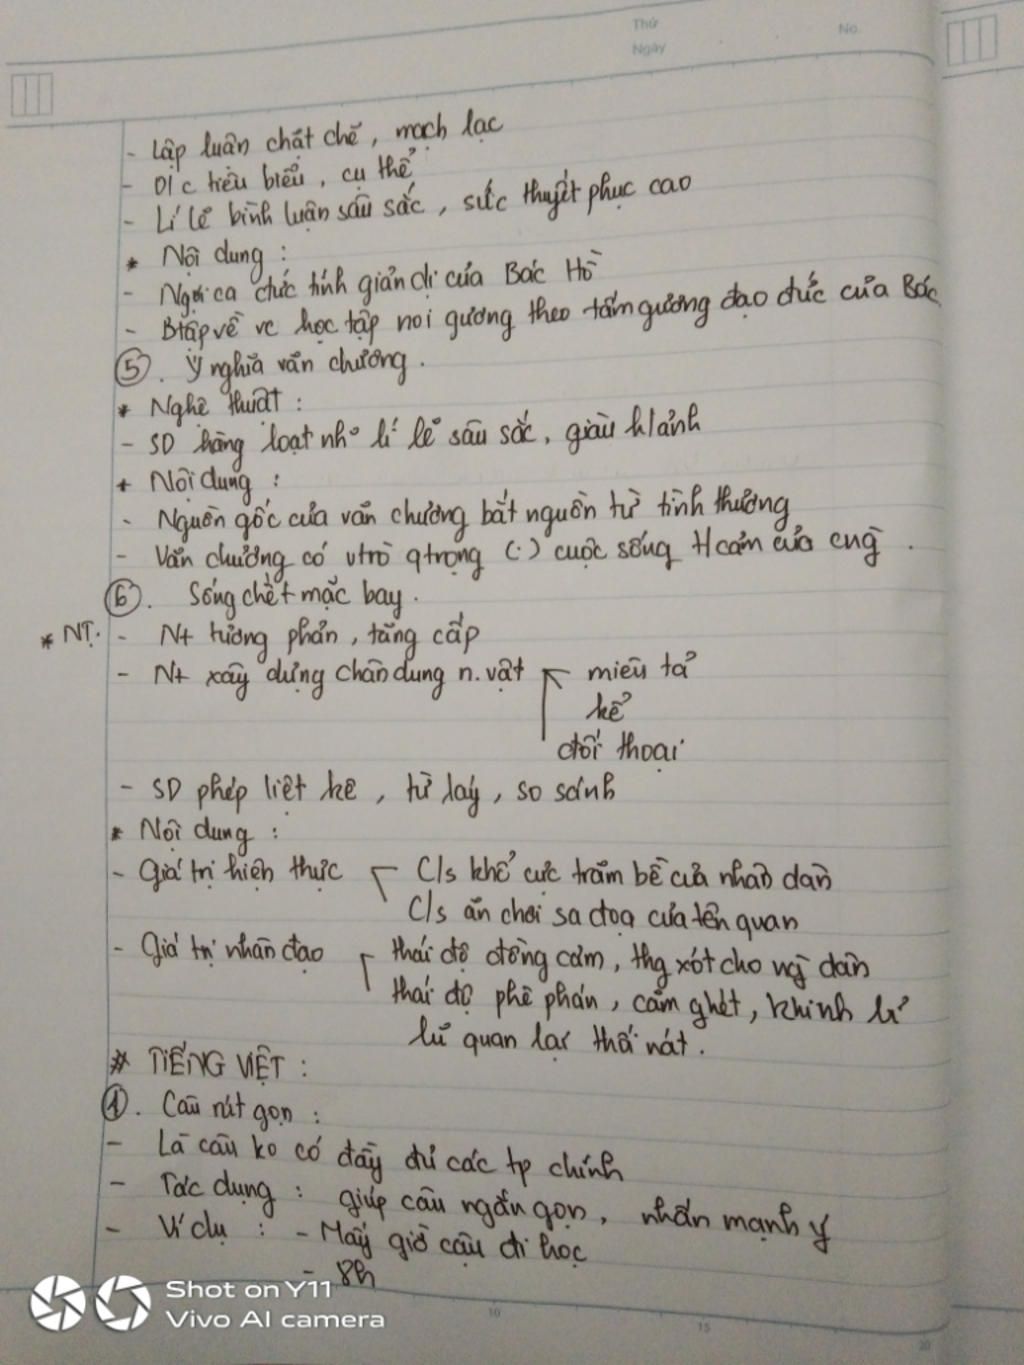 Thứ
Ngày
No.
- Lập luận chặt chẽ, mạch lạc
- D/c tiêu biểu, cụ thể
- Lí lẽ bình luận sâu sắc, sức thuyết phục cao
* Nội dung :
- Ngợi ca đức tính giản dị của Bác Hồ
- Btập về vc học tập noi gương theo tấm gương đạo đức của Bác
⑤. Ý nghĩa văn chương.
* Nghệ thuật :
- SD hàng loạt nh~ lí lẽ sâu sắc, giàu h/ảnh
* Nội dung :
- Nguồn gốc của văn chương bắt nguồn từ tình thương
- Văn chương có vtrò qtrọng (.) cuộc sống tcảm của cng̀.
⑥. Sống chết mặc bay.
* NT. - Nt tương phản, tăng cấp
- Nt xây dựng chân dung n.vật miêu tả
kể
đối thoại
- SD phép liệt kê, từ láy, so sánh
* Nội dung :
- Giá trị hiện thực C/s khổ cực trăm bề của nhân dân
C/s ăn chơi sa đoạ của tên quan
- Giá trị nhân đạo thái độ đồng cảm, thg xót cho ng̀ dân
thái độ phê phán, căm ghét, khinh bỉ
lũ quan lại thối nát.
* TIẾNG VIỆT :
①. Câu rút gọn :
- Là câu ko có đầy đủ các tp chính
- Tác dụng : giúp câu ngắn gọn, nhấn mạnh ý
- Ví dụ : - Mấy giờ cậu đi học
- 8h
Shot on Y11
Vivo AI camera
10
15
20